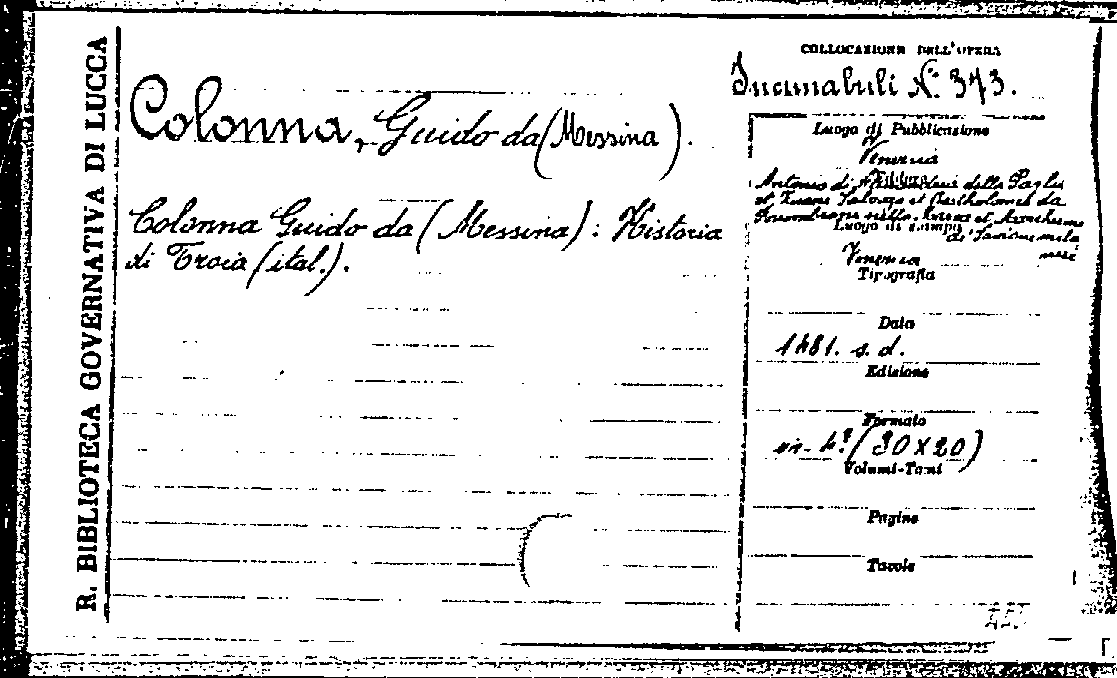 R. BIBLIOTECA GOVERNATIVA DI LUCCA
Colonna, Guido da (Messina).
Colonna Guido da (Messina): Historia
di Troia (ital.).
COLLOCAZIONE DELL'OPERA
Incunabuli N.º 373.
Luogo di Pubblicazione
Venezia
Antonio di della Paglia
et Bartholomeo da
Luogo di stampa
Venezia
Tipografia
Data
1481. s. d.
Edizione
Formato
in-4.º (30x20)
Volumi-Tomi
Pagine
Tavole